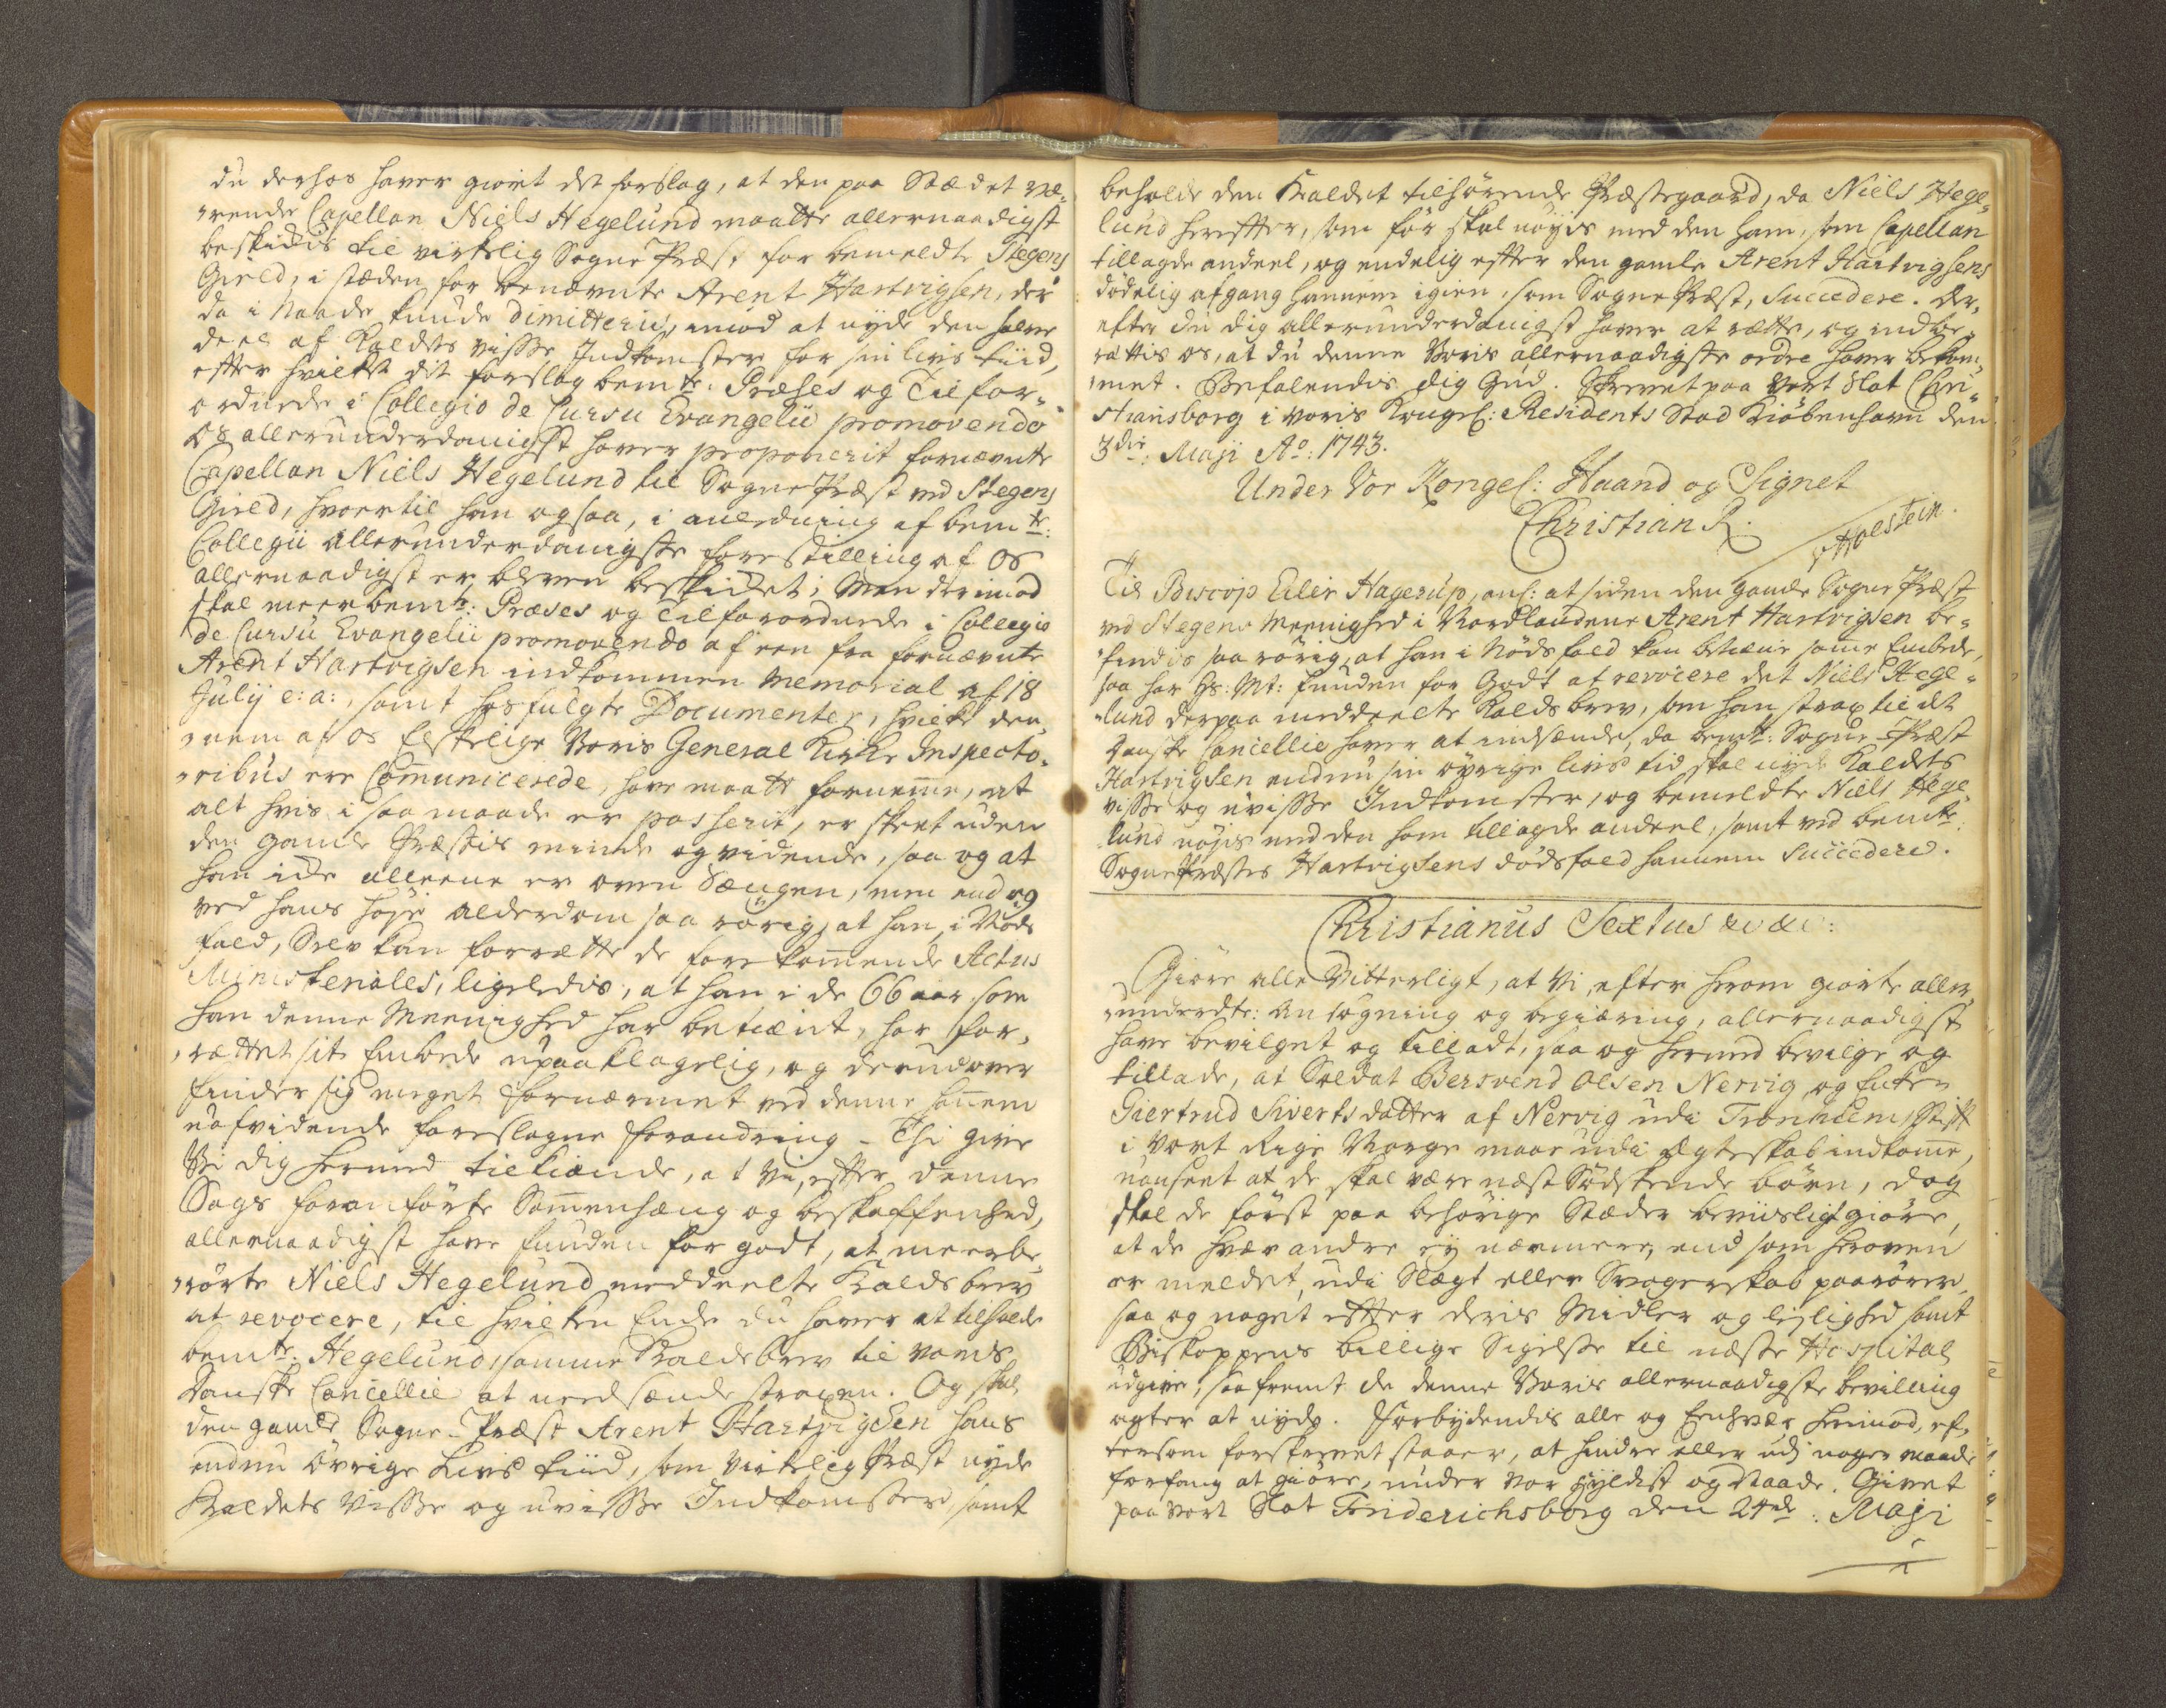 du derhos haver giort det forslag, at den paa Stædet væ-
rende Capellan Niels Hegelund maatte allernaadigst
beskikkis til virkelig Sogne Præst for bemeldte Stegens
Gield, i stæden for benævnte Arent Hartvigsen, der
da i Naade kunde dimitteris, imod at nyde den halve
deel af Kaldets visse Indkomster for sin livs tiid,
efter hvilket dit forslag bemte: Præses og Tilfor-
ordnede i Collegio de Cursu Evangelii promovendo
Os allerunderdanigst haver proponerit fornævnte
Capellan Niels Hegelund til Sogne Præst ved Stegens
Gield, hvortil han ogsaa, i anledning af bemte:
Collegii allerunderdanigste forestilling af Os
allernaadigst er bleven beskikket; Men derimod
skal meerbemte: Præses og Tilforordnede i Collegio
de Cursu Evangelii promovendo af een fra fornævnte
Arent Hartvigsen indkommen Memorial af 18
Julij e: a:, samt hosfulgte Documenter, hvilke den-
nem af Os Elskelige Voris General Kirke Inspecto-
ribus ere Com̄unicerede, have maatt fornem̄e, at
alt hvis i saa maade er passerit, er skeet uden
den gamle Præstis minde og vidende, saa og at
han icke alleene er oven Sængen, men end og
ved hans høje alderdom saa rørig, at han, i Nøds
fald, Selv kan forrætte de forekom̄ende Actus
Ministeriales, ligeledis, at han i de 66 aar som
han denne Meenighed har betient, har for-
rættet sit Embede upaaklagelig, og derudover
finder sig meget fornærmet ved denne han̄em
uafvidende foreslagne forandring - Thi give
Vi dig hermed tilkiende, at Vi, efter denne
Sags foranførte Sam̄enhæng og beskaffenhed,
allernaadigst have funden for godt, at meerbe-
rørte Niels Hegelund meddeelte Kaldsbrev
at revocere, til hvilken Ende du haver at tilholde
bemte: Hegelund, samme Kaldsbrev til vores
Danske Cancellie at needsænde straxen. Og skal
den gamle Sogne-Præst Arent Hartvigsen hans
endnu øvrige Livs tiid, som virkelig Præst nyde
Kaldets Visse og uvisse Indkomster, samt
beholde den Kaldet tilhørende Præstegaard, da Niels Hege-
lund herefter, som før skal nøyes med den ham, som Capellan
tillagde andeel, og endelig efter den gamle Arent Hartvigsens
dødelig afgang hannem igien, som Sogne Præst, Succedere. Der-
efter du dig allerunderdanigst haver at rætte, og indbe-
rættis os, at du denne Voris allernaadigste ordre haver bekom-
met. Befalendis dig Gud. Skrevet paa Vort Slot Chri-
stiansborg i voris Kongel: Residents Stad Kiøbenhavn den
3die: Maji Ao: 1743.
Under Vor Kongel: Haand og Signet
Christian R.
Holstein.
Til Biscop Eiler Hagerup, anl: at siden den gamle Sogne Præst
ved Stegens Meenighed i Nordlandene Arent Hartvigsen be-
findes saa rørig, at han i Nødsfald kan betiene sam̄e Embede,
saa har Hs: Mt: funden for Godt at revocere det Niels Hege-
lund derpaa meddeelte Kaldsbrev, som han strax til det
Danske Cancellie haver at indsænde, da bemte: Sogne-Præst
Hartvigsen endnu sin øvrige livs tid skal nyde Kaldets
visse og uvisse Indkomster, og bemeldte Niels Hege-
lund nøyes med den ham tillagde andeel, samt ved bemte:
SognePræstes Hartvigsens dødsfald hannem Succedere.
Christianus Sextus &c &c:
Giøre alle Vitterligt, at Vi, efter herom giorte aller-
underdte: Ansøgning og begiæring, allernaadigst
have bevilget og tilladt, saa og hermed bevilge og
tillade, at Soldat Bersvend Olsen Nervig og Enken
Giertrud Sivertsdatter af Nervig udi Tronhiems Stift
i Vort Rige Norge maae udi Ægteskab indkom̄e,
uanseet at de skal være næst Sødskende børn, dog
skal de først paa behørige Stæder beviisligt giøre,
at de hver andre ej nærmere, end som heroven
er meldet, udi Slægt eller Svogerskab paarører,
saa og noget efter deris Midler og lejlighed samt
Biskoppens billige Sigelse til næste Hospital
udgive, saafremt de denne Voris allernaadigste bevilling
agter at nyde. Forbydendis alle og Enhver herimod, ef-
tersom forskrevet staaer, at hindre eller udj nogen maade
forfang at giøre, under vor hyldist og Naade. Givet
paa vort Slot Friderichsborg den 24de: Maji